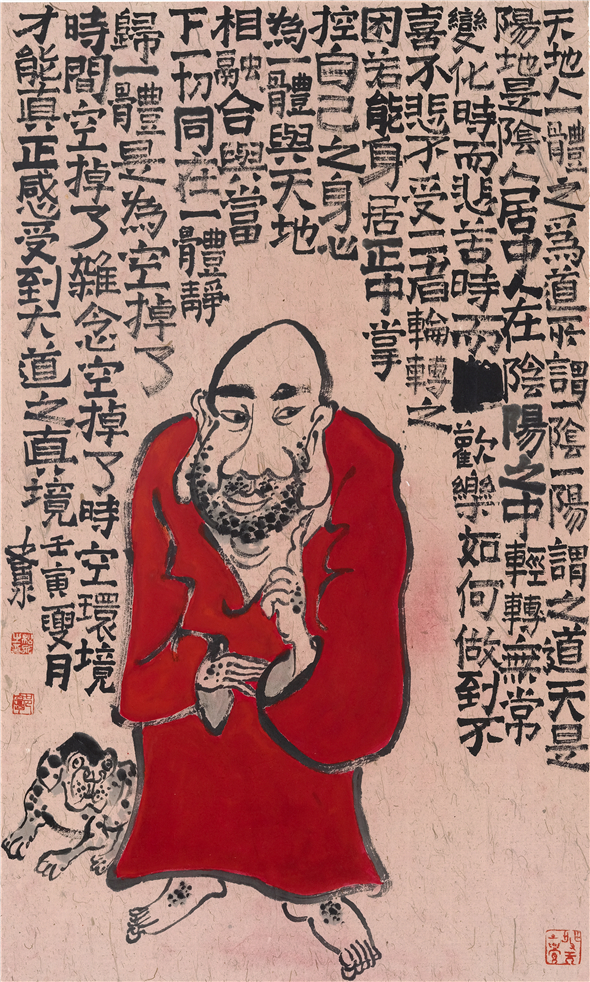 天地人一體之爲道所謂一陰一陽謂之道天是
陽地是陰人居中人在陰陽之中輕轉無常
變化時而悲苦時而歡樂如何做到不
喜不悲不受二者輪轉之
困若能身居正中掌
控自己之身心
為一體與天地
相融合與當
下一切同在一體靜
歸一體是為空掉了
時間空掉了雜念空掉了時空環境
才能真正感受到大道之真境壬寅夏月